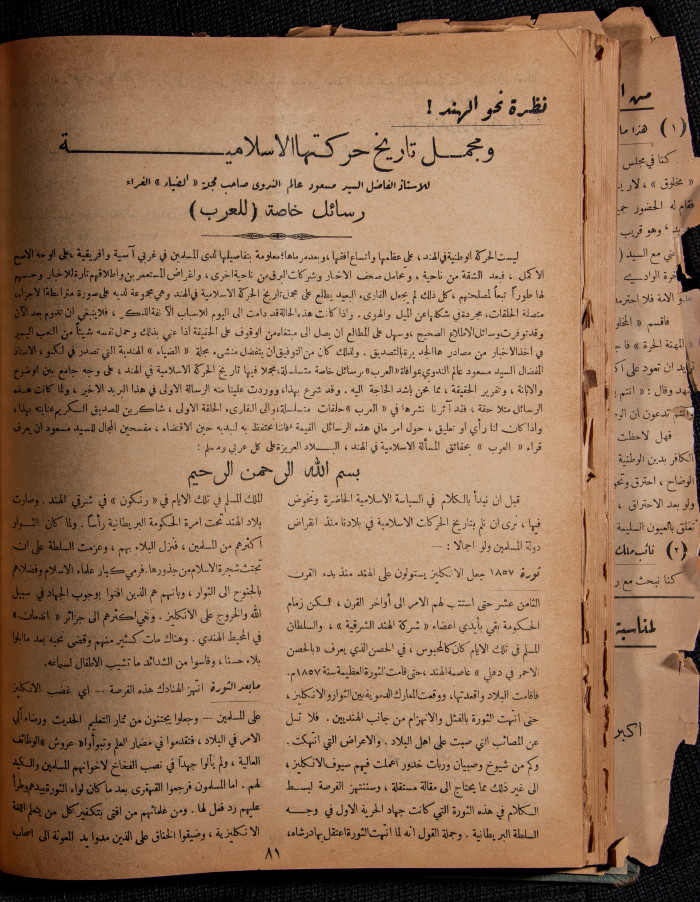 نظرة نحو الهند !
ومجمل تاريخ حركتها الاسلامية
للاستاذ الفاضل السيد مسعود عالم الندوى صاحب مجلة « الضياء » الغراء
رسائل خاصة (للعرب)
ليست الحركة الوطنية في الهند، على عظمها واتساع افقها، وبعد مرماها؛ معلومة بتفاصيلها لدى المسلمين في غربي آسية وافريقية، على الوجه الاصح
الاكمل ، فبعد الشقة من ناحية ، وتحامل صحف الاخبار وشركات البرق من ناحية اخرى، واغراض المستعمرين واطلاقهم تارة للاخبار وحبسهم
لها طوراً تبعاً لمصلحتهم ، كل ذلك لم يجعل القارىء البعيد يطلع على مجمل تاريخ الحركة الاسلامية في الهند وهي مجموعة لديه على صورة مترابطة الاجزاء،
متصلة الحلقات، مجردة في شكلها عن الميل والهوى . واذا كانت هذه الحالة قد دامت الى اليوم للاسباب الآنفة الذكر ، فلا ينبغي ان تدوم بعد الآن
وقد توفرت وسائل الاطلاع الصحيح ، وسهل على المطالع ان يصل الى مبتغاه من الوقوف على الحقيقة اذا عني بذلك وحمل نفسه شيئاً من التعب اليسير
في اخذ الاخبار من مصادرها الجديرة بالتصديق . ولذلك كان من التوفيق ان يتفضل منشىء مجلة « الضياء » الهندية التي تصدر في لكنو، الاستاذ
المفضال السيد مسعود عالم الندوي بموافاة «العرب» برسائل خاصة متسلسلة، مجملا فيها تاريخ الحركة الاسلامية في الهند ، على وجه جامع بين الوضوح
والابانة ، وتحرير الحقيقة ، مما نحن باشد الحاجة اليه . وقد شرع بهذا، ووردت علينا منه الرسالة الاولى في هذا البريد الاخير ، ولما كانت هذه
الرسائل متلاحقة ، فقد آثرنا نشرها في « العرب » حلقات متسلسلة، والى القارىء الحلقة الاولى ، شاكرين للصديق الكريم عنايته بهذا ،
واذا كان لنا رأي او تعليق ، حول امر ما في هذه الرسائل القيمة فاننا نحتفظ به لنبديه حين الاقتضاء ، مفسحين المجال للسيد مسعود ان يعرف
قراء « العرب » بحقائق المسألة الاسلامية في الهند ، البلاد العزيزة على كل عربي ومسلم :
بسم الله الرحمن الرحيم
قبل ان نبدأ بالكلام في السياسة الاسلامية الحاضرة ونخوض
فيها ، نرى ان نلم بتاريخ الحركات الاسلامية في بلادنا منذ انقراض
دولة المسلمين ولو اجمالا : —
ثورة ١٨٥٧ جعل الانكليز يستولون على الهند منذ بدء القرن
الثامن عشر حتى استتب لهم الامر الى أواخر القرن ، لكن زمام
الحكومة بقي بأيدي اعضاء « شركة الهند الشرقية » ، والسلطان
المسلم في تلك الايام كان كالمحبوس ، في الحصن الذي يعرف «بالحصن
الاحمر في دهلي » عاصمة الهند ، حتى قامت الثورة العظيمة سنة ١٨٥٧م.
فاقامت البلاد واقعدتها، ووقعت المعارك الدموية بين الثوار والانكليز ،
حتى انتهت الثورة بالفشل والانهزام من جانب الهنديين . فلا تسل
عن المصائب التي صبت على اهل البلاد . والاعراض التي انتهكت .
وكم من شيوخ وصبيان وربات خدور اعملت فيهم سيوف الانكليز ،
الى غير ذلك مما يحتاج الى مقالة مستقلة ، وسننتهز الفرصة لبسط
الكلام في هذه الثورة التي كانت جهاد الحرية الاول في وجه
السلطة البريطانية . وجملة القول انه لما انتهت الثورة اعتقل بهادر شاه،
الملك المسلم في تلك الايام في « رنكون » في شرقي الهند . وصارت
بلاد الهند تحت امرة الحكومة البريطانية رأساً . ولما كان الثوار
اكثرهم من المسلمين ، فنزل البلاء بهم ، وعزمت السلطة على ان
تجتث شجرة الاسلام من جذورها. فرمي كبار علماء الاسلام وفضلاءهم
بالجنوح الى الثوار ، وبانهم هم الذين افتوا بوجوب الجهاد في سبيل
الله والخروج على الانكليز . ونفي اكثرهم الى جزائر « اندمان »
في المحيط الهندي . وهناك مات كثير منهم وقضى نحبه بعد ما ابلوا
بلاء حسنا ، وقاسوا من الشدائد ما تشيب الاطفال لسماعه.
ما بعد الثورة انتهز الهنادك هذه الفرصة — اي غضب الانكليز
على المسلمين — وجعلوا يجتنون من ثمار التعليم الحديث ورضاء أولي
الامر في البلاد ، فتقدموا في مضمار العلم وتبوأوا « عروش » الوظائف
العالية ، ولم يألوا جهداً في نصب الفخاخ لاخوانهم المسلمين والكيد
لهم . اما المسلمون فرجعوا القهقرى بعد ما كان لواء الثورة بيدهم وطرأ
عليهم رد فعل لها . ومن علمائهم من افتى بتكفير كل من يتعلم اللغة
الانكليزية ، وضيقوا الخناق على الذين مدوا يد المعونة الى اصحاب
٨١
(١) هذا ما
كنا في مجلس
« مخلوق » ، لا
فقام له الحضور
وهو قريب
مع السيد (
فاقسم «
« المهنة الحرة »
ان تعود على
وقال : « انتم
تدعون ان
فهل لاحظت
الكافر بدين الوطنية
الوضاح ، احترق
ولو بعد الاحتراق ،
تعلق بالعيون السليمة
(٢) نائب ملك
كنا نبحث مع
لمناسبة
اكبر